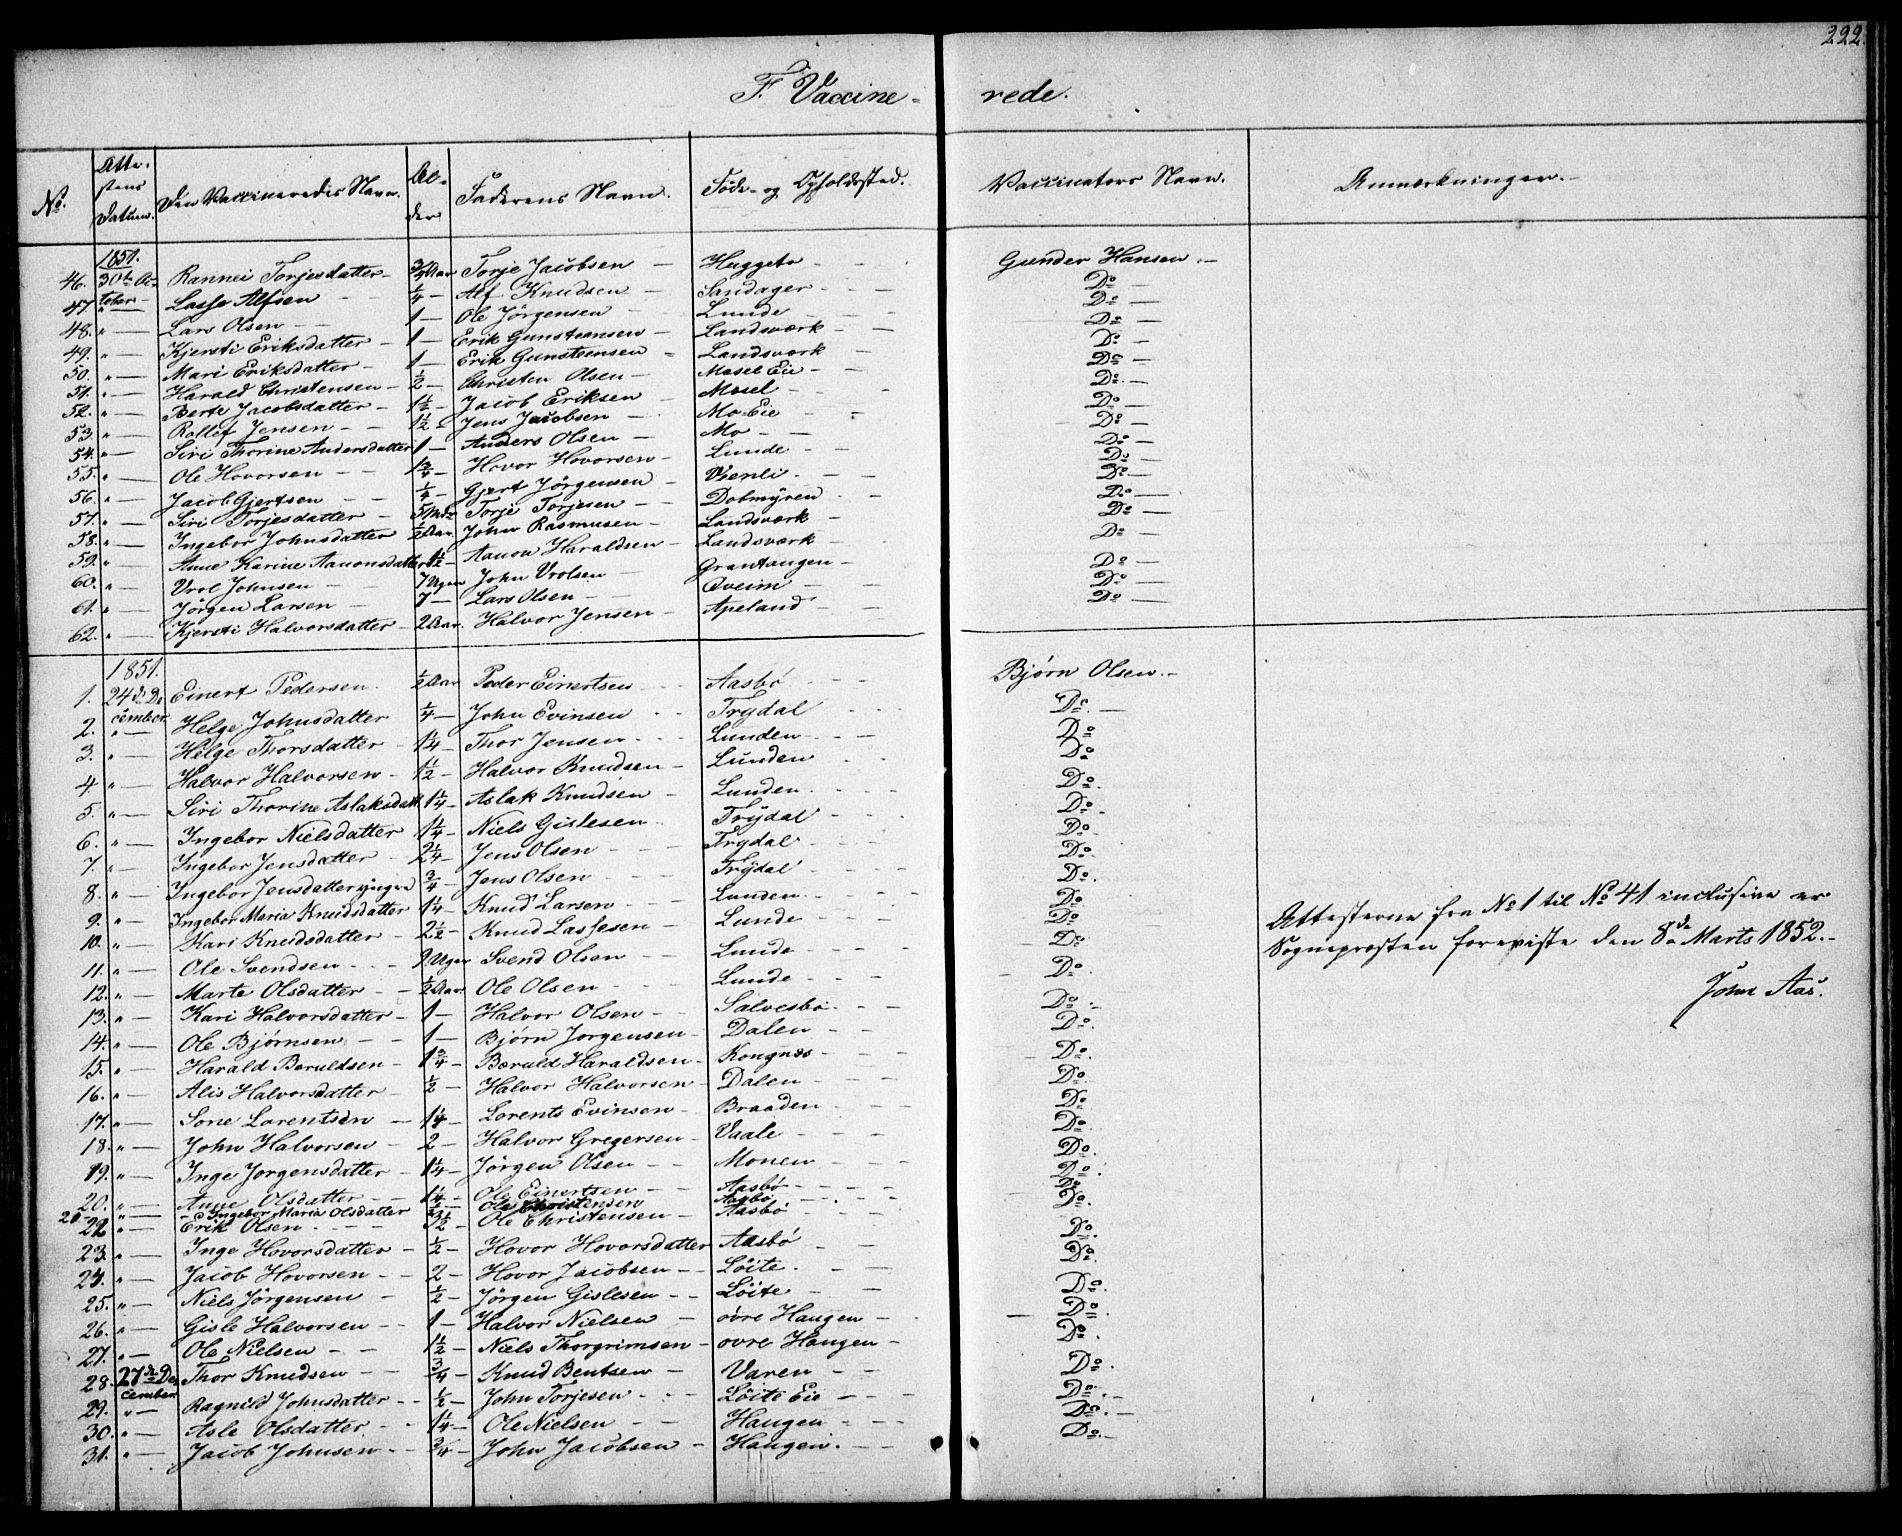 222.
F. Vaccine- rede.
No. Atte- stens Datum. Den Vaccineredes Navn. Al- der Faderens Navn. Føde- og Opholdssted. Vaccinators Navn. Anmærkninger.
1851.
46. 30te Oc- Rannei Torjesdatter 3/4 Aar Torje Jacobsen — Huggeto Gunder Hansen.
47. tober — Lasse Alfsen 1/4 — Alf Knudsen — Sandager Do
48. " — Lars Olsen 1 — Ole Jörgensen Lunde Do
49. " — Kjersti Eriksdatter 1 — Erik Gunsteensen Landsværk Do
50. " — Mari Eriksdatter 1 — Erik Gunsteensen Landsværk Do
51. " — Harald Christensen 1/2 — Christen Olsen Mosel Eie Do
52. " — Berte Jacobsdatter 1 1/2 — Jacob Eriksen Mosel Do
53. " — Rollef Jensen 1 1/2 — Jens Jacobsen Mo Eie Do
54. " — Siri Thorine Andersdatter 1 — Anders Olsen Mo Do
55. " — Ole Hovorsen 1 3/4 — Hovor Hovorsen Lunde Do
56. " — Jacob Gjertsen 1/4 — Gjert Jörgensen Vrenli Do
57. " — Siri Torjesdatter 5 Mdr Torje Torjesen Dobmyren Do
58. " — Ingebor Johnsdatter 1/2 Aar John Rasmusen Landsværk Do
59. " — Anne Karine Aanonsdatter 1 1/2 — Aanon Haraldsen Landsværk Do
60. " — Vrol Johnsen 7 Uger John Vrolsen Grantangen Do
61. " — Jörgen Larsen 7 — Lars Olsen Qveim Do
62. " — Kjersti Halvorsdatter 2 Aar. Halvor Jensen Apeland Do
1851.
1. 24de De- Einert Pedersen 1/2 Aar Peder Einertsen Aasbö Bjørn Olsen.
2. cember " — Helge Johnsdatter 1/4 — John Evinsen Trydal Do
3. " — Helge Thorsdatter 1 1/4 — Thor Jensen Lunden Do
4. " — Halvor Halvorsen 1 1/2 — Halvor Knudsen Lunden Do
5. " — Siri Thorine Aslaksdatt. 1 1/4 — Aslak Knudsen Lunden Do
6. " — Ingebor Nielsdatter 1 1/4 — Niels Gislesen Trydal Do
7. " — Ingebor Jensdatter 2 1/4 — Jens Olsen Trydal Do
8. " — Ingebor Jensdatter yngre 3/4 — Jens Olsen Trydal Do
9. " — Ingebor Maria Knudsdatter 1 1/4 — Knud Larsen Lunden Do
10. " — Kari Knudsdatter 2 1/2 — Knud Lassesen Lunde Do
11. " — Ole Svendsen 9 Uger Svend Olsen Lunde Do
12. " — Marte Olsdatter 1/2 Aar. Ole Olsen Lunde Do
13. " — Kari Halvorsdatter 1 — Halvor Olsen Salvesbö Do
14. " — Ole Bjørnsen 1 — Bjørn Jorgensen Dalen Do
15. " — Harald Beruldsen 1 3/4 — Bæruld Haraldsen Kongnæs Do
16. " — Alis Halvorsdatter 1/2 — Halvor Halvorsen Dalen Do
17. " — Sone Lorentsen 1 1/4 — Lorents Evinsen Braaden Do
18. " — John Halvorsen 2 — Halvor Gregersen Vaale Do
19. " — Inge Jorgensdatter 1 1/4 — Jörgen Olsen Monen Do
20. " — Anne Olsdatter 1 1/4 — Ole Einertsen Aasbö Do
" — Ingebor Maria Olsdatter Ole Christensen Aasbö Do
22. " — Erik Olsen 3 1/2 — Ole Christensen Aasbö Do
23. " — Inge Hovorsdatter 1/2 — Hovor Hovorsdatter Aasbö Do
24. " — Jacob Hovorsen 2 — Hovor Jacobsen Löite Do
25. " — Niels Jörgensen 1/2 — Jörgen Gislesen Löite Do
26. " — Gisle Halvorsen 1 — Halvor Nielsen övre Haugen Do
27. " — Ole Nielsen 1 1/2 — Niels Thorgrimsen ovre Haugen Do
28. 27de De- Thor Knudsen 3/4 — Knud Bentsen Varen Do
29. cember " — Ragnild Johnsdatter 1/2 — John Torjesen Löite Eie Do
30. " — Asle Olsdatter 1 1/4 — Ole Nielsen Haugen Do
31. " — Jacob Johnsen 3/4 — John Jacobsen Haugen Do
Attesterne fra No 1 til No 41 inclusive er
Sognepresten foreviste den 8de Marts 1852.
John Aas.